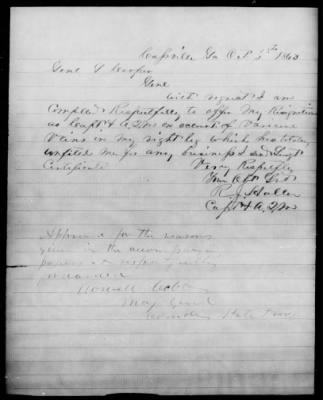 Ga Oct 5th 1863
Genl S Cooper
Genl
With regret I am
Compelled Respectfully to offer My Resignation
as Capt & A.Q.M on account of Varicose
Veins in my right leg which
unfits me for any business see Surg's
Certificate Very Respectfully
Your Obt Svt
R. J.
Capt & A.Q.M
Approved for the reasons
given in the accompanying
papers & respectfully
forwarded
Howell Cobb
Maj Genl
State